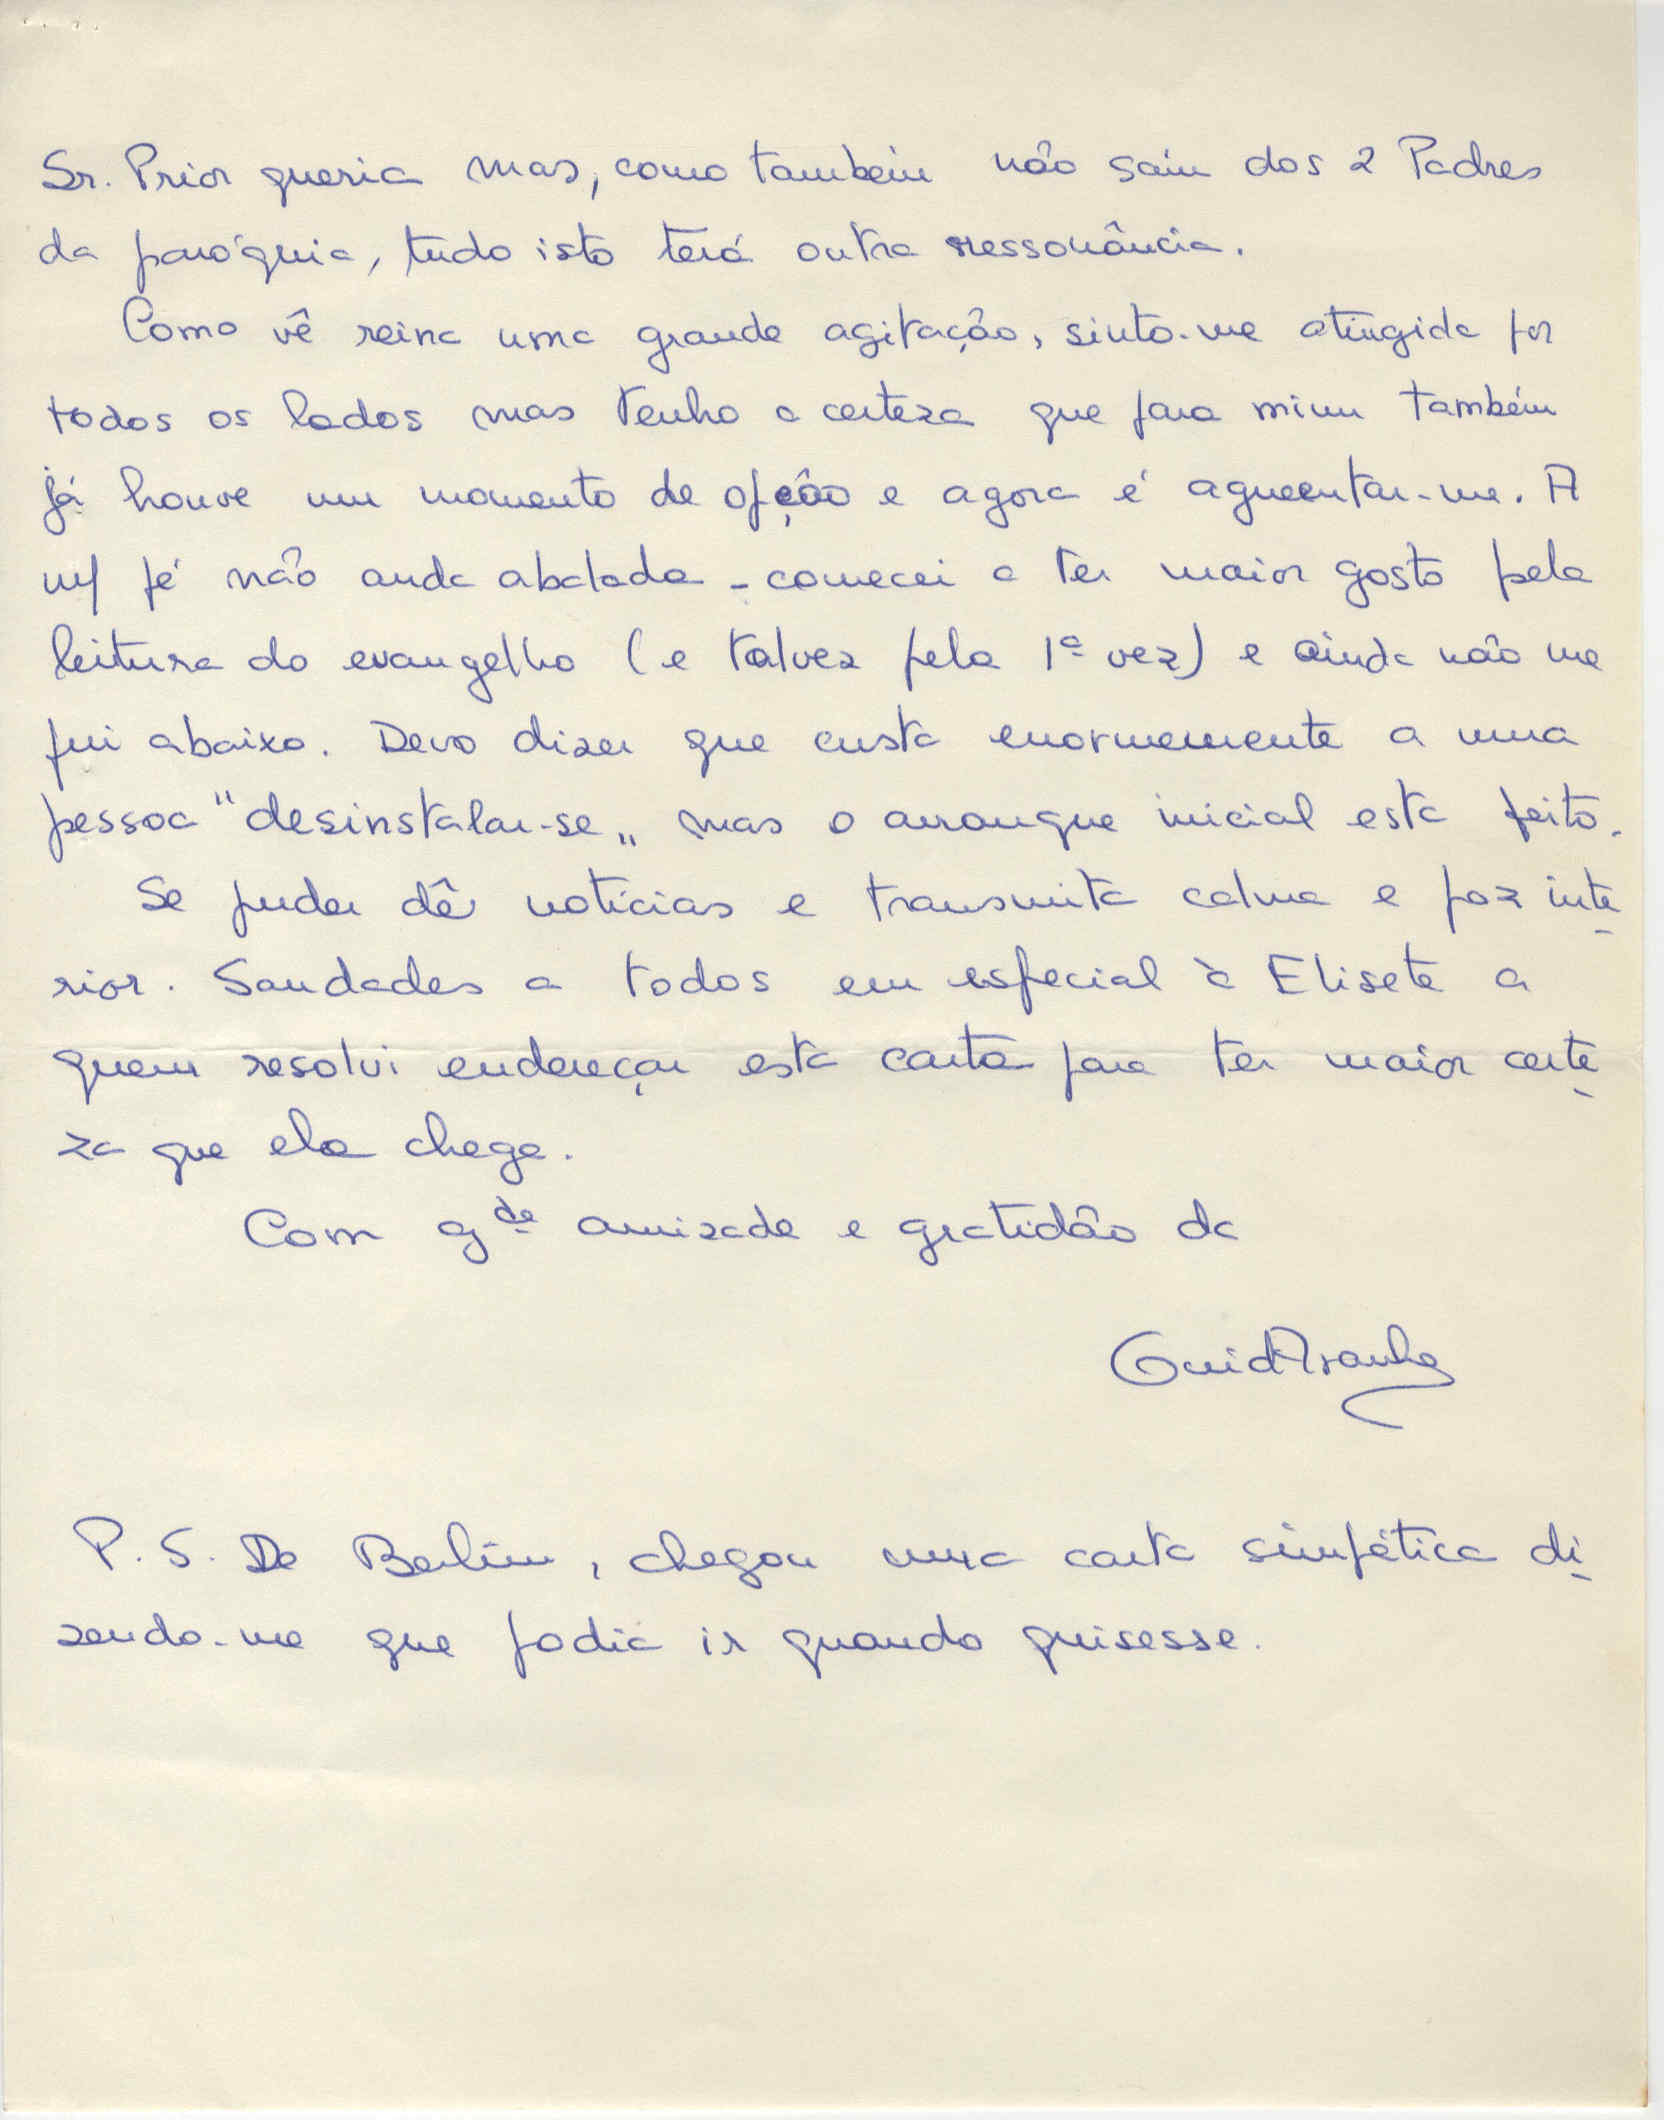 Sr. Prior queria mas, como também não saiu dos 2 Padres
da paróquia, tudo isto terá outra ressonância.
Como vê reina uma grande agitação, sinto-me atingida por
todos os lados mas tenho a certeza que para mim também
já houve um momento de opção e agora é aguentar-me. A
m/ fé não anda abalada - comecei a ter maior gosto pela
leitura do evangelho (e talvez pela 1ª vez) e ainda não me
fui abaixo. Devo dizer que custa enormemente a uma
pessoa "desinstalar-se" mas o arranque inicial esta feito.
Se puder dê notícias e transmita calma e paz inte
rior. Saudades a todos em especial à Elisete a
quem resolvi endereçar esta carta para ter maior certe
za que ela chega.
Com gde amizade e gratidão da
P.S. De Berlim, chegou uma carta simpática di
zendo-me que podia ir quando quisesse.